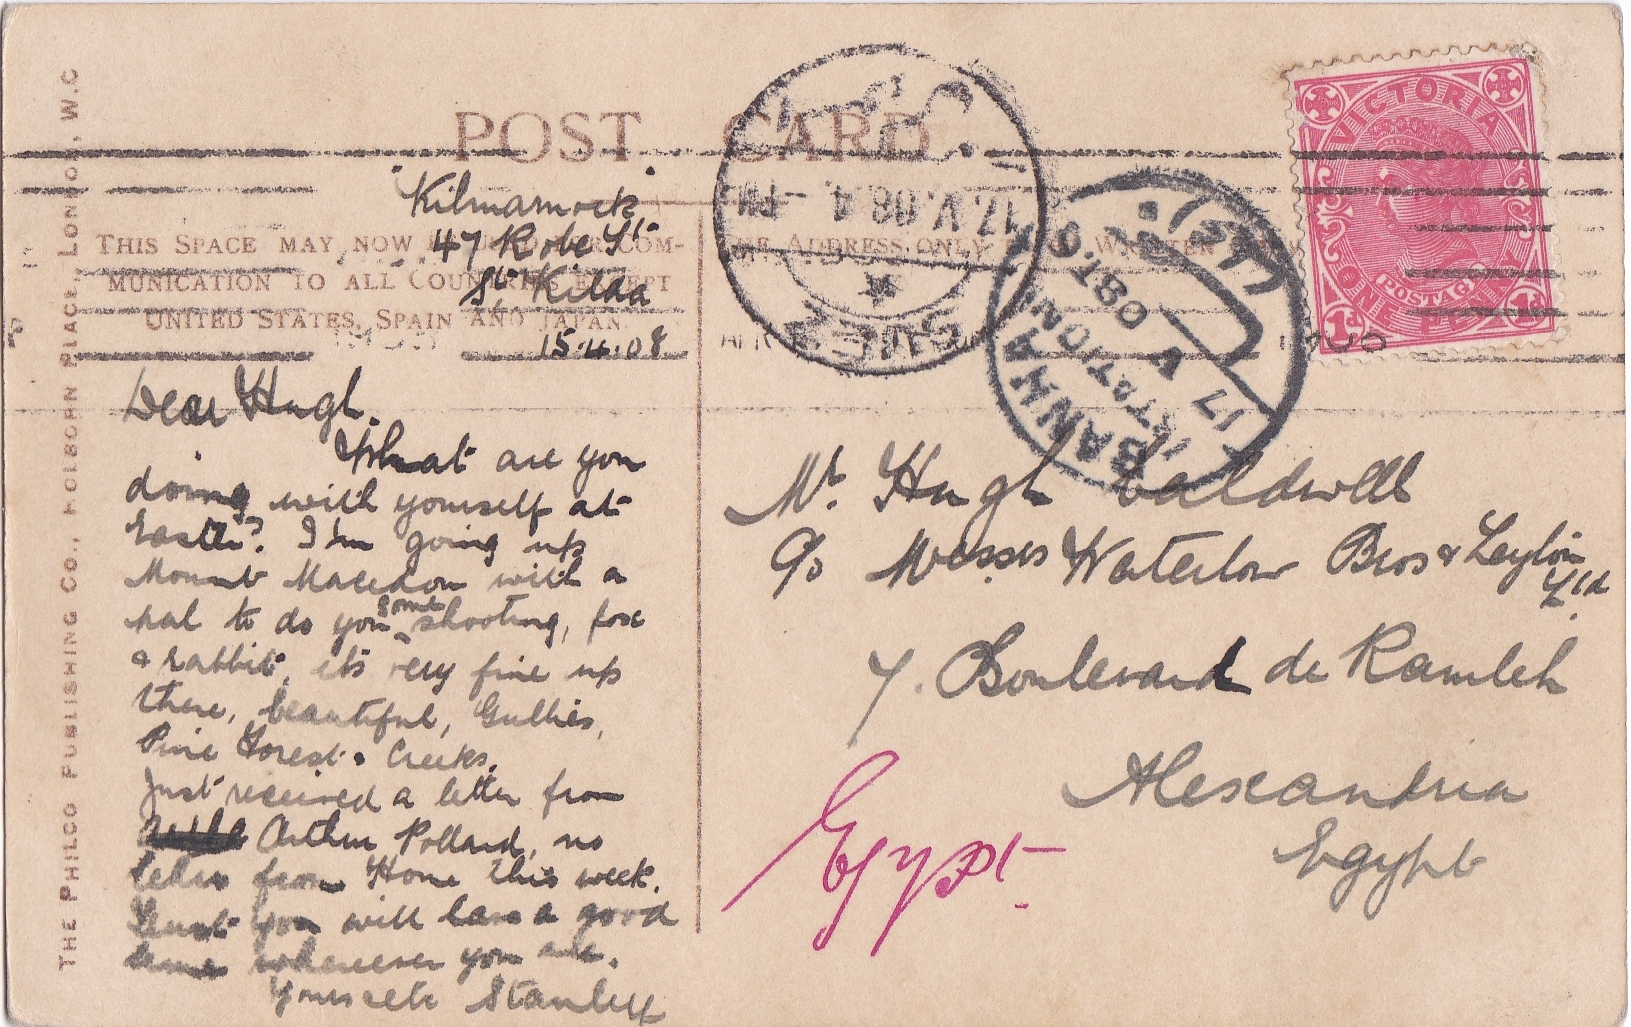 POST CARD
"Kilmarnock",
47 Robe St
St Kilda
15.4.08
THIS SPACE MAY NOW COM-
MUNICATION TO ALL COUNTRIES EXCEPT
UNITED STATES, SPAIN AND JAPAN.
THE ADDRESS ONLY WRITTEN
THE PHILCO PUBLISHING CO., HOLBORN PLACE, LONDON, W.C
Dear Hugh.
What are you
doing with yourself at
Easter? I'm going up
Mount Macedon with a
pal to do you some shooting, fox
& rabbit, it's very fine up
there, beautiful, Gullies,
Pine Forest & Creeks.
Just received a letter from
Arthur Pollard, no
letter from Home this week.
Trust you will have a good
time wherever you are.
Yours etc Stanley
SUEZ
17.V.08.4 - PM
BANHA
(STATION)
17 V 08 T.6
VICTORIA
POSTAGE
ONE PENNY
1d 1d
Mr. Hugh Caldwell
c/o Messrs Waterlow Bros & Layton
Ltd.
7. Boulevard de Ramleh
Alexandria
Egypt
Egypt